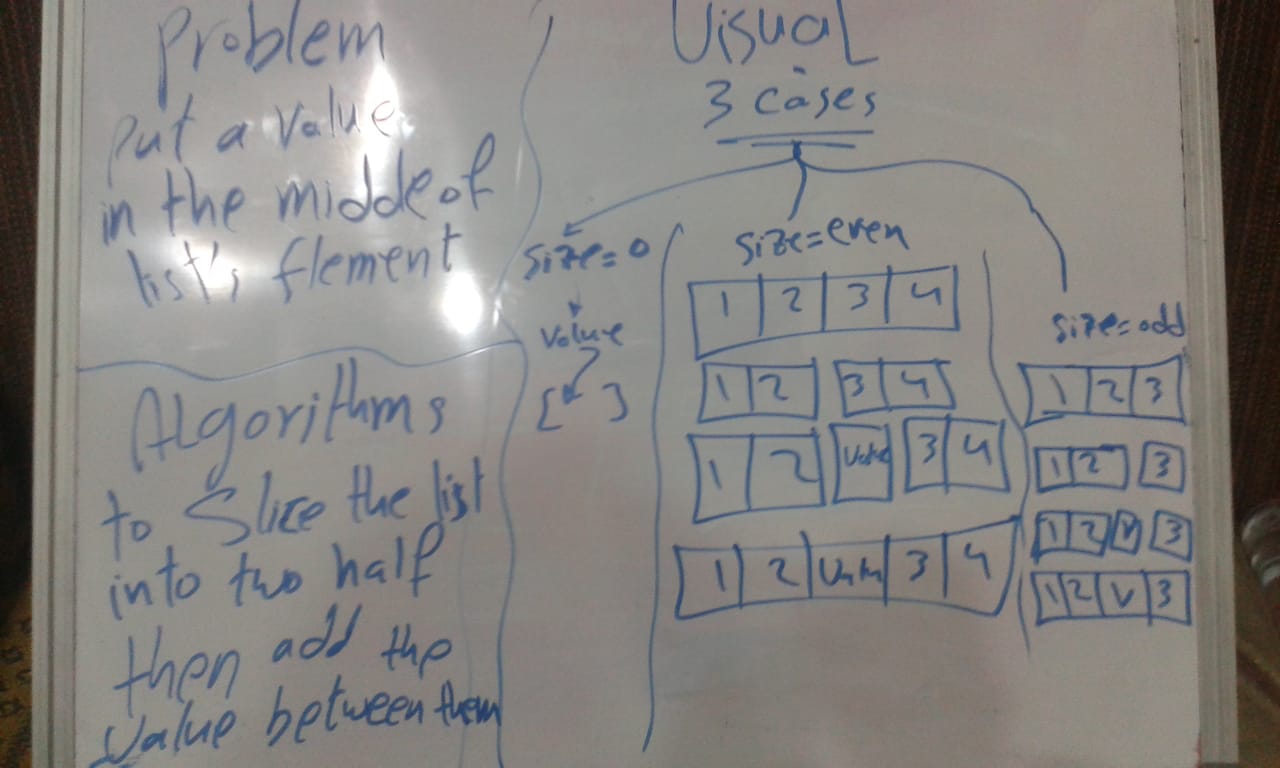 Problem
put a value
in the midde of
list's flement
Algorithms
to Slice the list
into two half
then add the
value between them
Visual
3 cases
size = 0
value
[ ]
size = even
1 2 3 4
1 2 3 4
1 2 Value 3 4
1 2 Value 3 4
size = odd
1 2 3
1 2 3
1 2 V 3
1 2 V 3